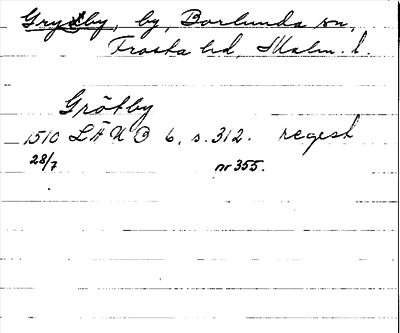 Gryby, by, Borlunda sn,
Frosta hd, Malm. l.
Grötby
1510 LÄUB 6, s. 312. regest
28/7 nr 355.